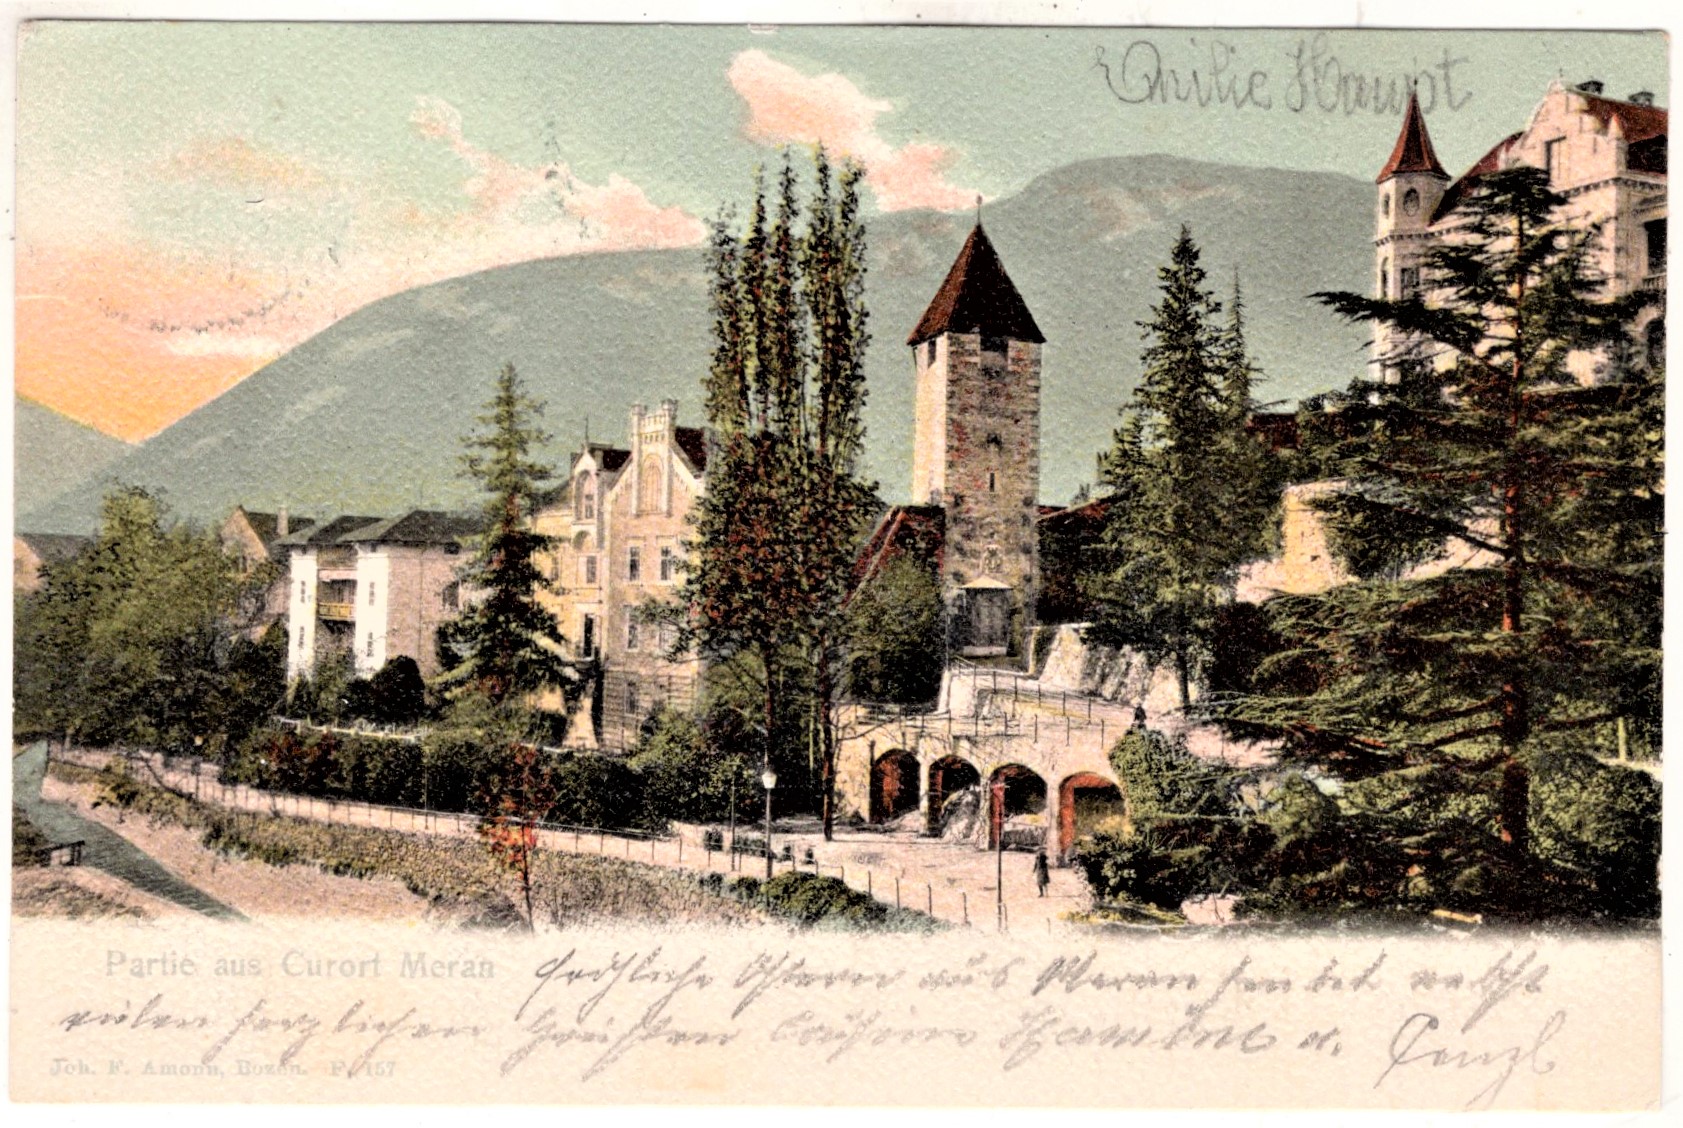 Emilie Haupt
Partie aus Curort Meran
Fröhliche Ostern aus Meran sendet nebst
vielen herzlichen Grüssen Cousine
Joh. F. Amonn, Bozen. F. 157